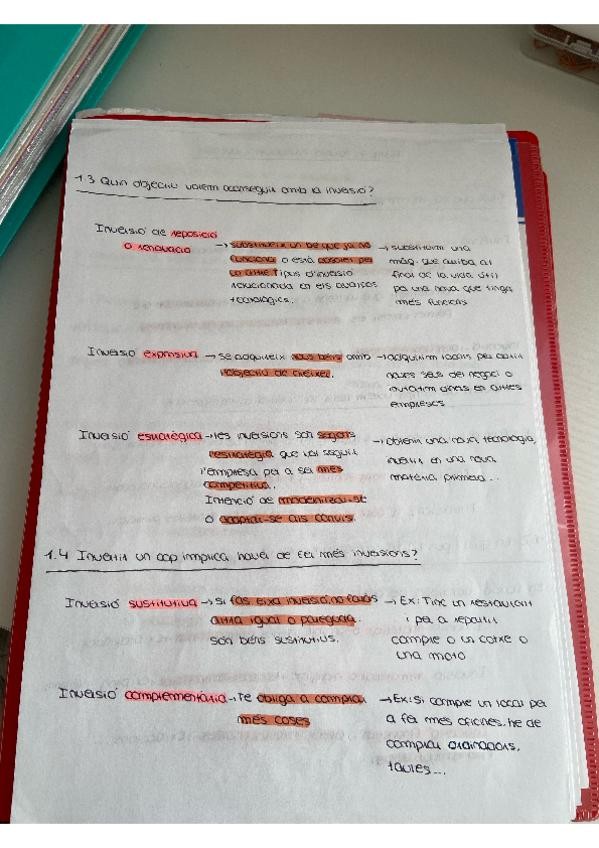 1.3 Quin objectiu volem aconseguir amb la inversió?
Inversió de reposició
o renovació → substituïm un bé que ja no → substituïm una
funciona o està obsolet per
un altre. Tipus d'inversió
relacionada en els avanços
tecnològics.
màq. que arriba al
final de la vida útil
per una nova que tinga
més funcions
Inversió expansiva → se adquireix nous béns amb → adquirim locals per obrir
l'objectiu de créixer.
noves seus del negoci o
invertim diners en altres
empreses
Inversió estratègica → les inversions són segons → obtenir una nova tecnologia,
l'estratègia que vol seguir
l'empresa per a ser més
competitiva.
Intenció de modernitzar-se
o adaptar-se als canvis.
invertir en una nova
matèria primera...
1.4 Invertir un cop implica haver de fer més inversions?
Inversió substitutiva → si fas eixa inversió, no faràs → Ex: Tinc un restaurant
altra igual o pareguda.
són béns substitutius.
i per a repartir
compre o un cotxe o
una moto
Inversió complementària → Te obliga a comprar → Ex: Si compre un local per
més coses
a fer més oficines, he de
comprar ordinadors,
taules...